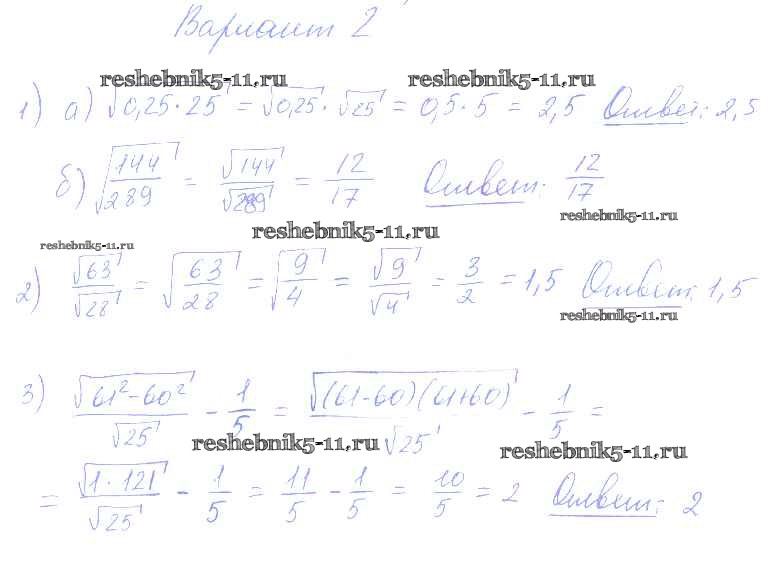 Вариант 2
reshebnik5-11.ru reshebnik5-11.ru
1) а) √0,25·25 = √0,25 · √25 = 0,5·5 = 2,5 Ответ: 2,5
б) √(144/289) = √144/√289 = 12/17 Ответ: 12/17
reshebnik5-11.ru
reshebnik5-11.ru
reshebnik5-11.ru
2) √63/√28 = √(63/28) = √(9/4) = √9/√4 = 3/2 = 1,5 Ответ: 1,5
reshebnik5-11.ru
3) √(61²-60²)/√25 - 1/5 = √((61-60)(61+60))/√25 - 1/5 =
reshebnik5-11.ru reshebnik5-11.ru
= √(1·121)/√25 - 1/5 = 11/5 - 1/5 = 10/5 = 2 Ответ: 2